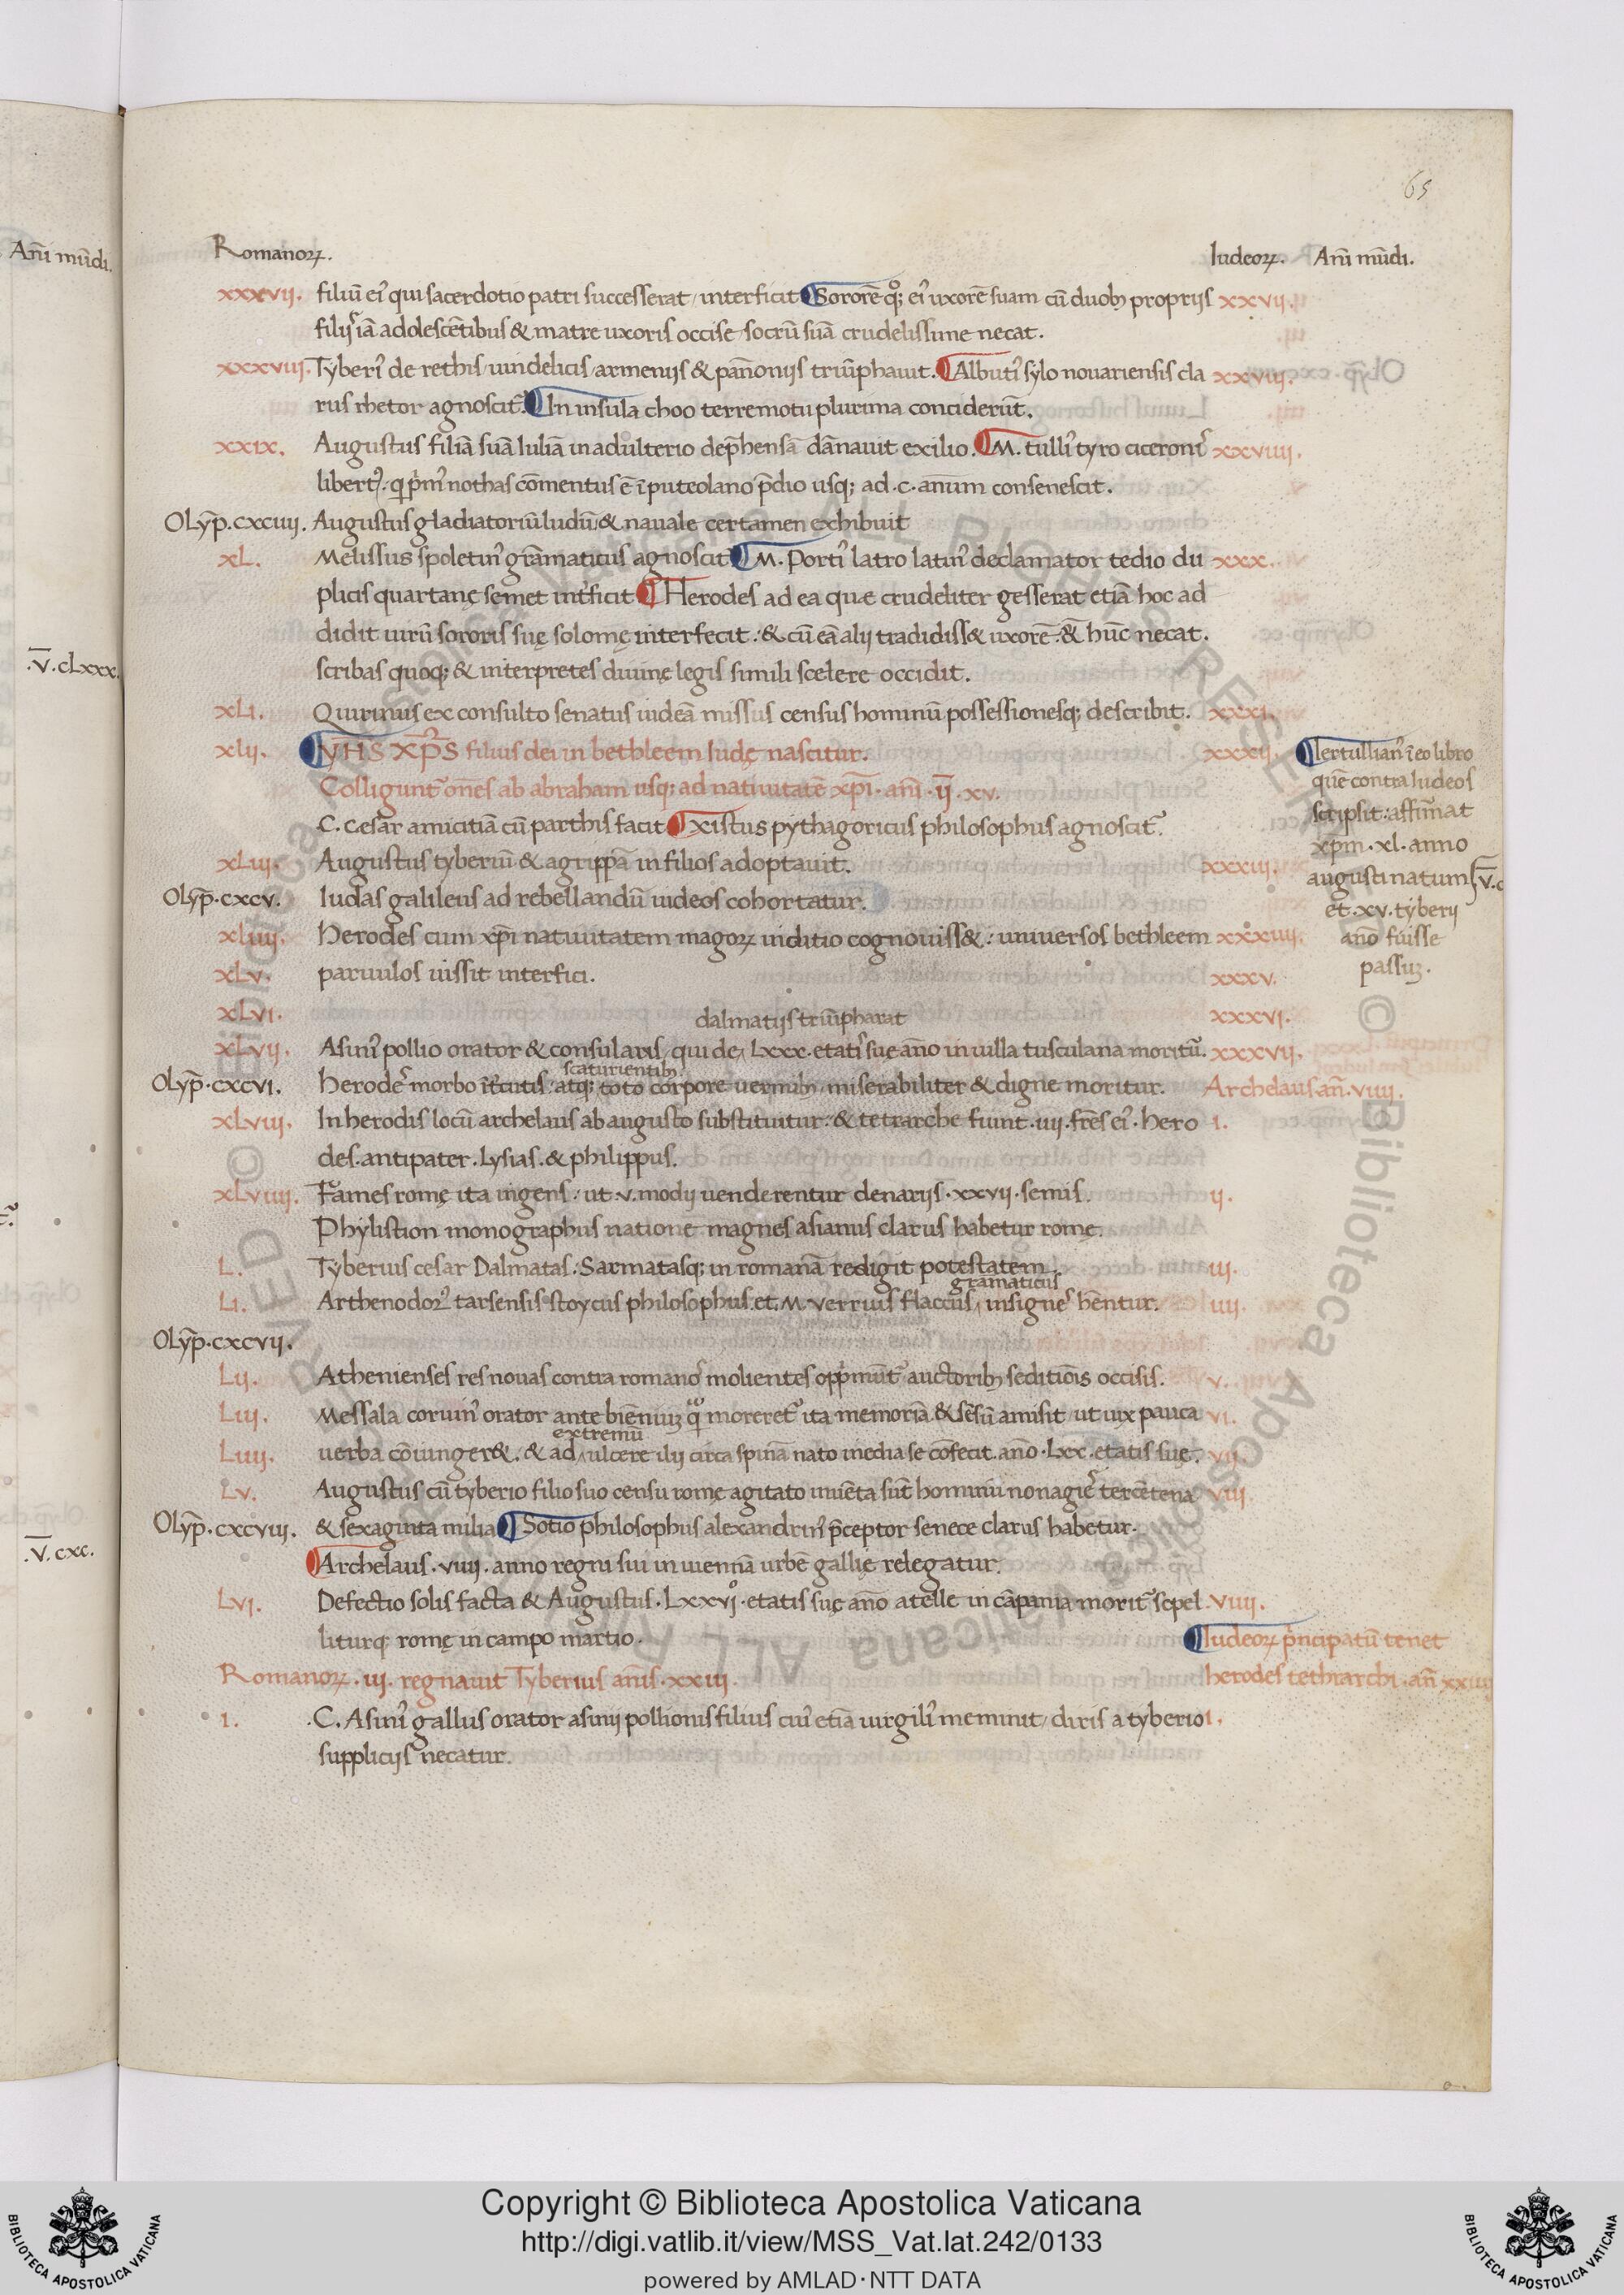 65
Romanoꝝ. Iudeoꝝ. Añi mũdi.
Añi mũdi.
xxxvii. filiũ ei᷒ qui sacerdotio patri successerat / interficit ¶ Sororẽ qͦ; ei᷒ uxorẽ suam cũ duobꝫ proprijs xxvii.
filijs iã adolescẽtibus & matre uxoris occise socrũ suã crudelissime necat.
xxxviii. Tyberi᷒ de rethis / uindelicis / armenijs & pañonijs triũphauit. ¶ Albuti᷒ sylo nouariensis cla xxviii.
rus rhetor agnoscit᷑. ¶ In insula choo terremotu plurima conciderũt.
xxix. Augustus filiã suã Iuliã in adulterio dep̃hensã dãnauit exilio. ¶ M. tulli᷒ tyro ciceronis xxviiii.
libert᷒. q p̃m᷒ nothas cõmentus ẽ ĩ puteolano p̃dio usq; ad .c. anum consenescit.
Olỹp. cxciiii. Augustus gladiatoriũ ludũ & nauale certamen exhibuit
xL. Melissus spoletin᷒ grãmaticus agnoscit ¶ M. Porti᷒ latro latin᷒ declamator tedio du xxx.
plicis quartanę semet int̃ficit ¶ Herodes ad ea quæ crudeliter gesserat etiã hoc ad
didit uirũ sororis suę solomę interfecit : & cũ eã alij tradidiss& uxorẽ .& hũc necat.
.V̅. cLxxx.
scribas quoq; & interpretes diuinę legis simili scelere occidit.
xLi. Quirinus ex consulto senatus iudeã missus census hominũ possessionesq; describit. xxxi.
xlii. ¶ YHS XP̃S filius dei in bethleem Iudę nascitur. xxxii.
Colligunt᷑ oñes ab abraham usq; ad natiuitatẽ xp̃i . añi . ii̅ . xv.
C. Cesar amicitiã cũ parthis facit ¶ Xistus pythagoricus philosophus agnoscit᷑.
xLiii. Augustus tyberiũ & agrippã in filios adoptauit. xxxiii.
Olỹp. cxcv. Iudas galileus ad rebellandũ iudeos cohortatur.
xliiii. Herodes cum xp̃i natiuitatem magoꝝ inditio cognouiss& : uniuersos bethleem xxxiiii.
xLv. paruulos iussit interfici. xxxv.
¶ Tertullian᷒ ĩ eo libro
quẽ contra Iudeos
scripsit : affirmat
xp̃m . xl. anno
augusti natum
et .xv. tyberij
año fuisse
passuꝫ.
V̅.c
xLvi. xxxvi.
dalmatijs triũpharat
xLvii. Asini᷒ pollio orator & consularis / qui de / Lxxx. etatis suę año in uilla tusculana moritũ. xxxvii.
scaturientibꝫ
Olỹp. cxcvi. Herodes morbo ĩt̃cutis : atq; toto corpore uermibꝫ / miserabiliter & digne moritur. Archelaus añ. viiii.
xLviii. In herodis locũ archelaus ab augusto substituitur : & tetrarche fiunt .iiii. fr̃es ei᷒. hero i.
des. antipater. Lysias. & philippus.
xLviiii. Fames romę ita ingens : ut .v. modij uenderentur denarijs . xxvii. semis. ii.
Phylistion monographus natione magnes asianus clarus habetur romę.
L. Tyberius cesar Dalmatas : Sarmatasq; in romanã redigit potestatem. iii.
gramaticus
Li. Arthenodor᷒ tarsensis stoycus philosophus. et. M. verrius flaccus / insignes hẽntur. iiii.
Olỹp. cxcvii.
Lii. Athenienses res nouas contra romanos molientes opp̃munt᷑ auctoribꝫ seditiõis occisis. v.
Liii. Messala coruin᷒ orator ante bienniuꝫ qͦ moreret᷑ ita memoriã & sẽsũ amisit ut uix pauca vi.
extremũ
Liiii. uerba cõiunger& . & ad / ulcere ilij circa spinã nato inedia se cõfecit. año .Lxx. etatis suę. vii.
Lv. Augustus cũ tyberio filio suo censu romę agitato inuẽta sũt hominũ nonagies tercẽtena viii.
Olỹp. cxcviii. & sexaginta milia ¶ Sotio philosophus alexandrin᷒ p̃ceptor senece clarus habetur.
.V̅. cxc.
¶ Archelaus .viiii. anno regni sui in uiennã urbẽ gallię relegatur.
Lvi. Defectio solis facta & Augustus . Lxxviͦ. etatis suę año atelle in cãpania morit᷑ sepel viiii.
liturq; romę in campo martio. ¶ Iudeoꝝ p̃ncipatũ tenet
Romanoꝝ . iii. regnauit Tyberius añis . xxiii. herodes tethrarchi . añ xxiiii
i. .C. Asini᷒ gallus orator asinij pollionis filius cui᷒ etiã uirgili᷒ meminit / diris a tyberio i.
supplicijs necatur.
Copyright © Biblioteca Apostolica Vaticana
http://digi.vatlib.it/view/MSS_Vat.lat.242/0133
powered by AMLAD·NTT DATA
BIBLIOTECA APOSTOLICA VATICANA
BIBLIOTECA APOSTOLICA VATICANA